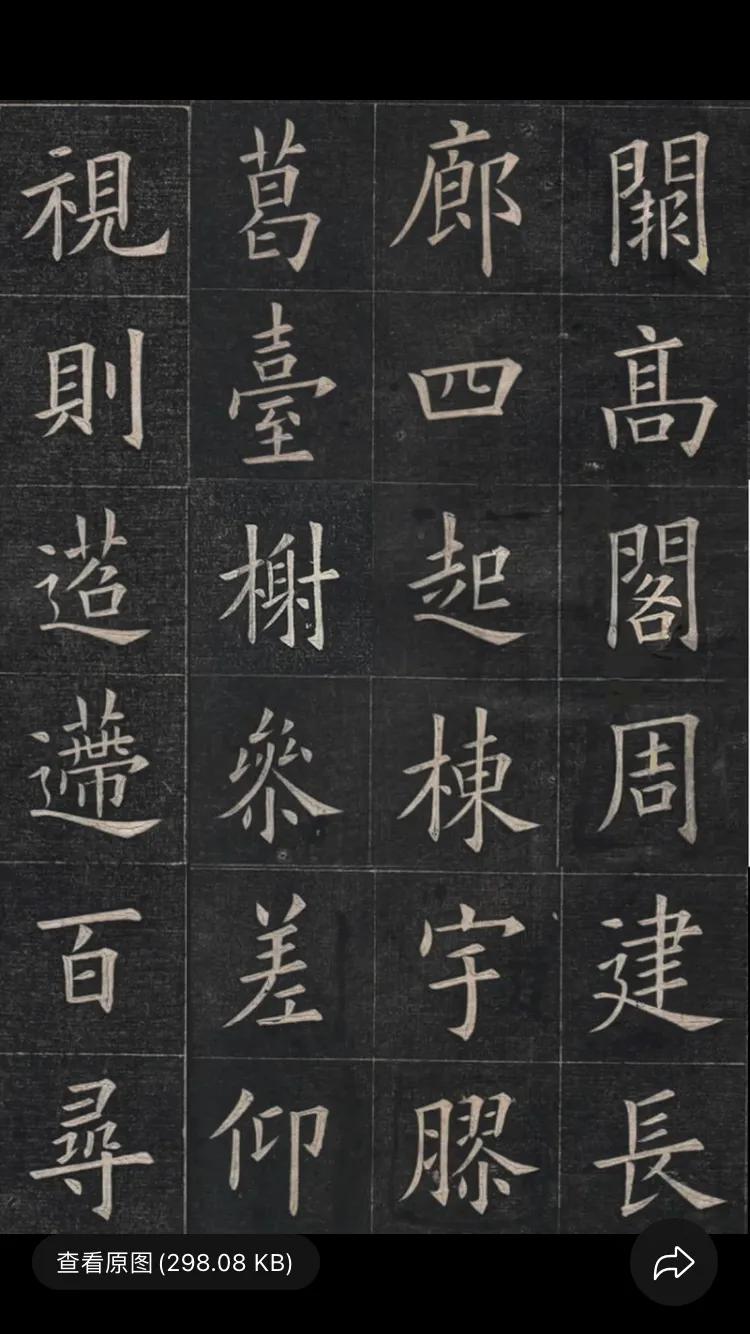 闕髙閣周建長
廊四起棟宇膠
葛臺榭叅差仰
視則迢遰百尋
查看原图(298.08 KB)